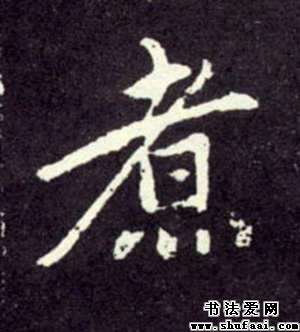 煮
书法爱网
www.shufaai.com